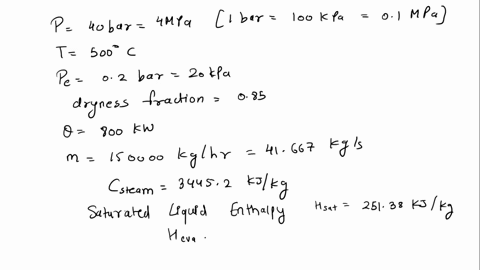 P = 40 bar = 4 MPa [1 bar = 100 kPa = 0.1 MPa]
T = 500° C
Pe = 0.2 bar = 20 kPa
dryness fraction = 0.85
θ = 800 KW
m = 150000 kg/hr = 41.667 kg/s
Csteam = 3445.2 KJ/kg
Saturated Liquid Enthalpy Hsat = 251.38 KJ/kg
Heva.